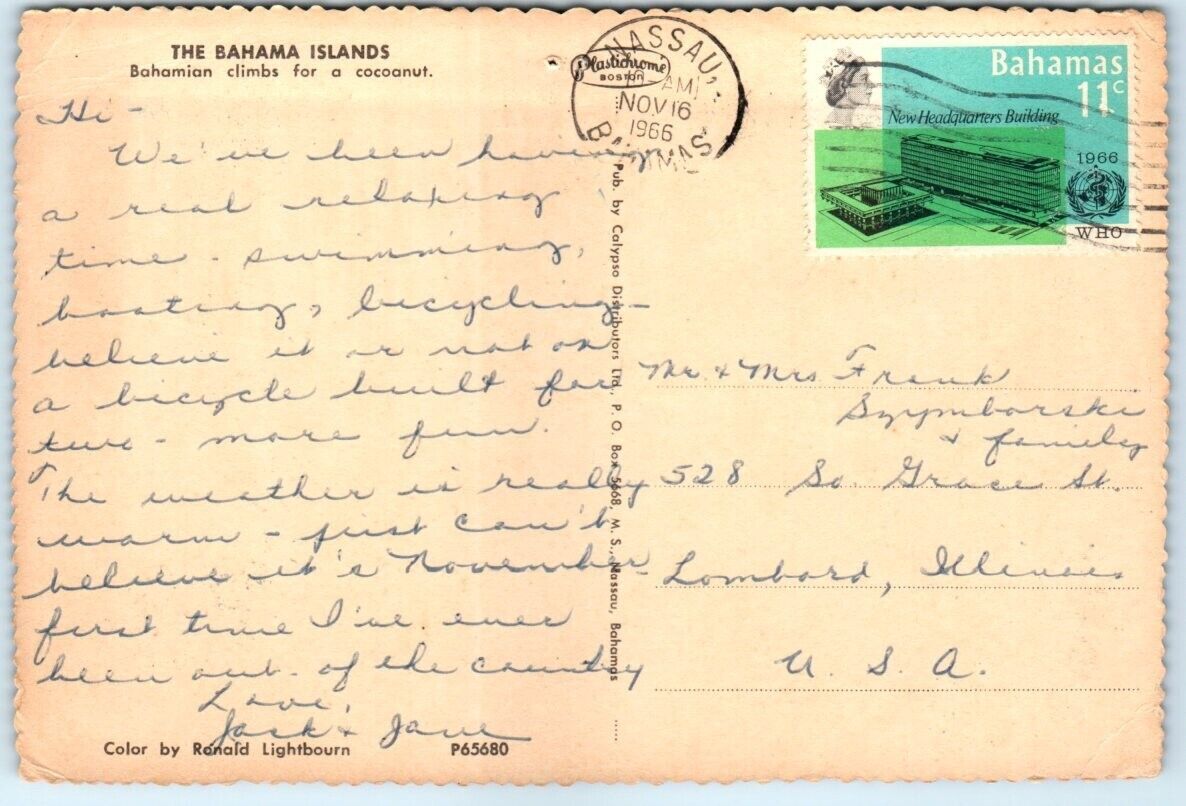 THE BAHAMA ISLANDS
Bahamian climbs for a cocoanut.
Hi -
We've been having
a real relaxing
time - swimming,
boating, bicycling -
believe it or not on
a bicycle built for
two - more fun.
The weather is really
warm - just can't
believe it's November -
first time I've ever
been out of the country
Love,
Jack & Jane
Color by Ronald Lightbourn
P65680
Plastichrome
BOSTON
Pub. by Calypso Distributors Ltd., P. O. Box 5668, M. S., Nassau, Bahamas
NASSAU,
AM
NOV 16
1966
BAHAMAS
Bahamas
11c
New Headquarters Building
1966
WHO
Mr. & Mrs Frank
Szymborski
& family
528 So. Grace St.
Lombard, Illinois
U. S. A.